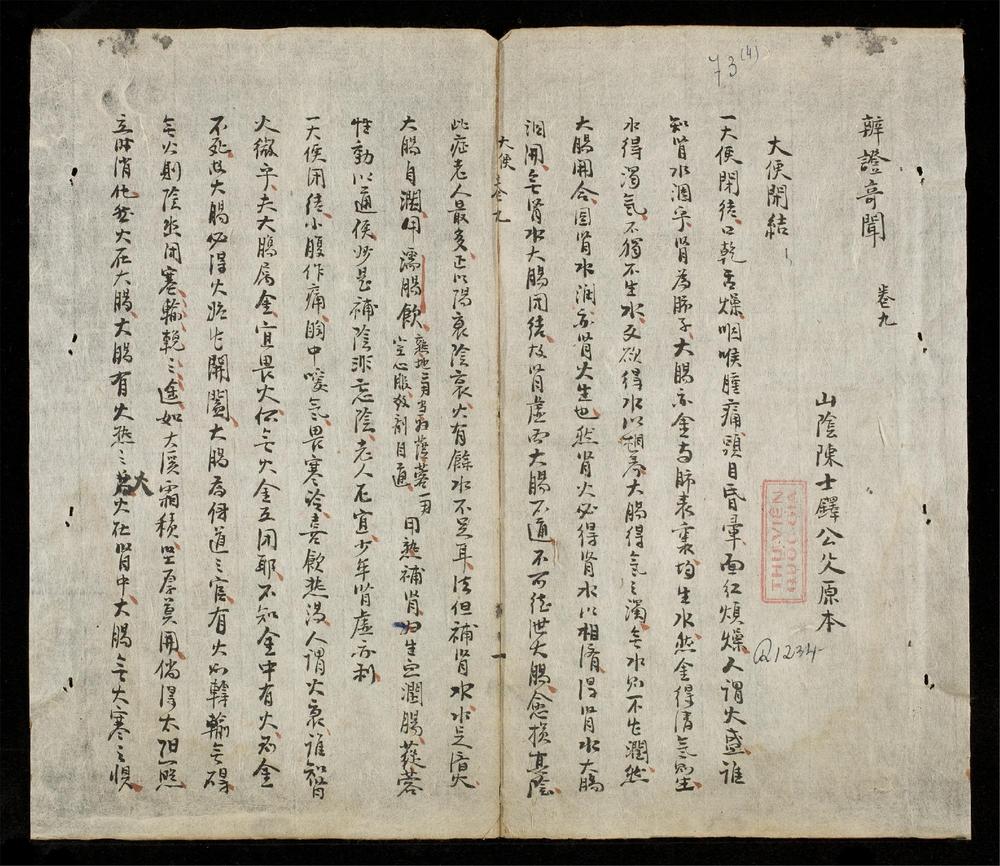 辨證奇聞 卷九
山陰陳士鐸公父原本
大便閉結
一大便閉结口乾舌燥咽喉腫痛頭目昏暈面紅煩燥人謂火盛誰
知肾水涸乎肾為肺子大腸亦金与肺表裏均生水然金得清氣則生
水得濁氣不獨不生水又欲得水以相养大腸得氣之濁無水則不能潤然
大腸開合因肾水潤亦肾火生也然肾火必得肾水以相濟得肾水大腸
洞開無肾水大腸闭结故肾虚而大腸不通不可徒泄大腸愈損真陰
大便 卷九
此症老人最多正以陽衰陰衰火有餘水不足耳法但補肾水水足濟火
大腸自潤用濡腸飲 熟地二两当归蓯蓉一两 空心服数剤自通 用熟補肾归生血潤腸蓯蓉
性動以通便妙是補陰非忘陰老人尤宜少年肾虚亦利
一大便闭结小腹作痛胸中嗳氣畏寒冷喜飲热湯人謂火衰誰知肾
火微乎夫大腸属金宜畏火何無火金反闭耶不知金中有火则金
不死故大腸必得火始能開闔大腸為傳道之官有火则轉輸無碍
無火則陰氣闭塞輸輓之途如大溪霜積坚厚莫開倘得太阳照
立时消化然火在大腸大腸有火热之苦火在肾中大腸無大寒之惧
大
73 (4)
THƯ VIỆN QUỐC GIA
Q1234